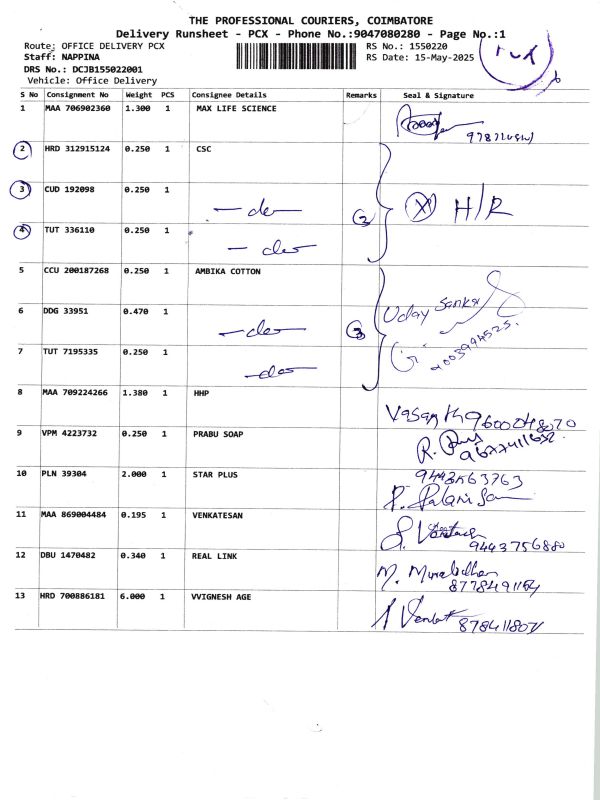 THE PROFESSIONAL COURIERS, COIMBATORE
Delivery Runsheet - PCX - Phone No.:9047080280 - Page No.:1
Route: OFFICE DELIVERY PCX
RS No.: 1550220
Staff: NAPPINA
RS Date: 15-May-2025
DRS No.: DCJB155022001
Vehicle: Office Delivery
S No Consignment No Weight PCS Consignee Details Remarks Seal & Signature
1 MAA 706902360 1.300 1 MAX LIFE SCIENCE
2 HRD 312915124 0.250 1 CSC
3 CUD 192098 0.250 1 -do- 3 H/R
4 TUT 336110 0.250 1 -do-
5 CCU 200187268 0.250 1 AMBIKA COTTON
6 DDG 33951 0.470 1 -do- 3 Uday Sankar
7 TUT 7195335 0.250 1 -do- 9003994525.
8 MAA 709224266 1.380 1 HHP Vasanth 9600048070
9 VPM 4223732 0.250 1 PRABU SOAP
10 PLN 39304 2.000 1 STAR PLUS
11 MAA 869004484 0.195 1 VENKATESAN 9443756880
12 DBU 1470482 0.340 1 REAL LINK
13 HRD 700886181 6.000 1 VVIGNESH AGE